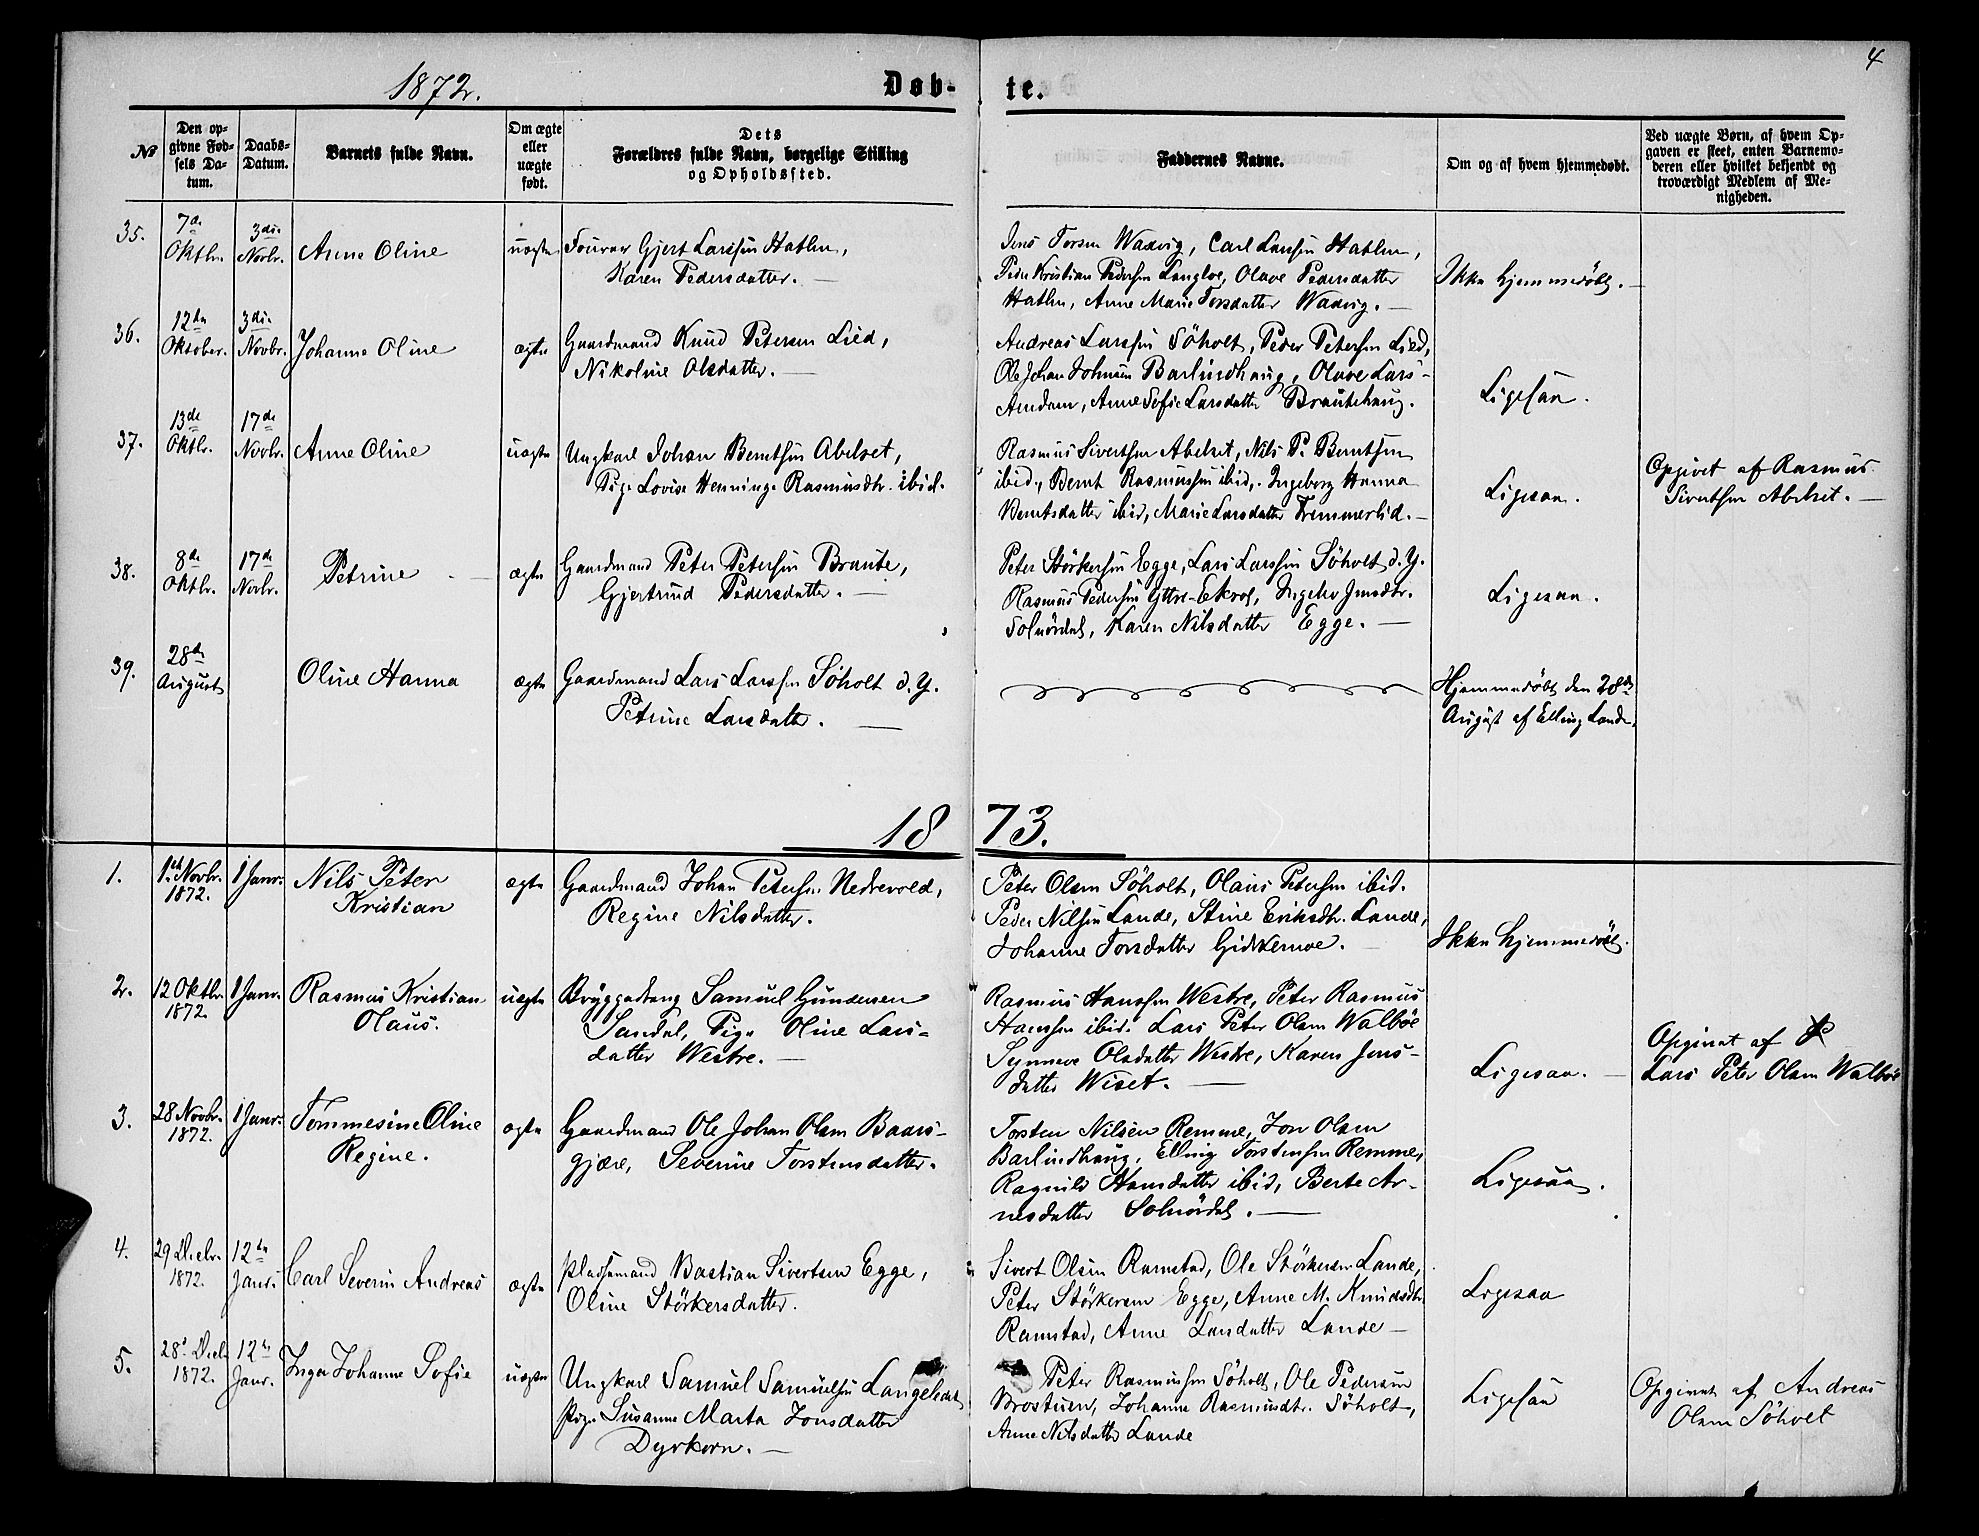 4
1872.
Døb-
te.
№
Den op-
givne Fød-
sels Da-
tum.
Daabs-
Datum.
Barnets fulde Navn.
Om ægte
eller
uægte
født.
Dets
Forældres fulde Navn, borgelige Stilling
og Opholdssted.
Faddernes Navne.
Om og af hvem hjemmedøbt.
Ved uægte Børn, af hvem Op-
gaven er skeet, enten Barnemo-
deren eller hvilket bekjendt og
troværdigt Medlem af Me-
nigheden.
35.
7de
Oktbr.
3die
Novbr.
Anne Oline
uægte
Fourer Gjert Larssen Hatlen,
Karen Pedersdatter. —
Jens Torsen Waavig, Carl Larssen Hatlen,
Peder Kristian Pedersen Langloe, Olave Pedersdatter
Hatlen, Anne Marie Torsdatter Waavig. —
Ikke hjemmedøbt. —
36.
12te
Oktober.
3die
Novbr.
Johanne Oline
ægte
Gaardmand Knud Petersen Lied,
Nikoline Olsdatter. —
Andreas Larssen Söholt, Peder Petersen Lied,
Ole Johan Johnsen Barlindhaug, Olave Lars-
Amdam, Anne Sofie Larsdatter Brautehaug.
Ligesaa.
37.
13de
Oktbr.
17de
Novbr.
Anne Oline
uægte
Ungkarl Johan Berntsen Abelset,
Pige Lovise Henninge Rasmusdtr. ibid.
Rasmus Sivertsen Abelset, Nils P. Berntsen
ibid., Bernt Rasmussen ibid., Ingeborg Hanna
Berntsdatter ibid, Marie Larsdatter Fremmerlid. —
Ligesaa.
Opgivet af Rasmus
Sivertsen Abelset. —
38.
8de
Oktbr.
17de
Novbr.
Petrine
ægte
Gaardmand Peter Petersen Braute,
Gjertrud Pedersdatter. —
Peter Störkersen Egge, Lars Larssen Söholt d. Y.
Rasmus Pedersen Yttre-Ekrol, Ingeb. Jensdtr.
Solnördal, Karen Nilsdatter Egge. —
Ligesaa.
39.
28de
August
Oline Hanna
ægte
Gaardmand Lars Larssen Söholt d. Y.
Petrine Larsdatter. —
Hjemmedöbt den 28de
August af Elling Lande.
18 73.
1.
1ste Novbr.
1872.
1 Janr.
Nils Peter
Kristian
ægte
Gaardmand Johan Petersen Nedrevold,
Regine Nilsdatter.
Peter Olsen Söholt, Olaus Petersen ibid.
Peder Nilsen Lande, Stine Eriksdtr. Lande,
Johanne Torsdatter Gidskemoe. —
Ikke hjemmedöbt.
2.
12 Oktbr.
1872.
1 Janr.
Rasmus Kristian
Olaus.
uægte
Bryggedreng Samuel Gundersen
Sandal, Pige Oline Lars-
datter Westre. —
Rasmus Hanssen Westre, Peter Rasmus
Hanssen ibid. Lars Peter Olsen Walböe
Synneve Olsdatter Westre, Karen Jens-
datter Wiset. —
Ligesaa. —
Opgivet af
Lars Peter Olsen Walböe
3.
28 Novbr.
1872.
1 Janr.
Tommesine Oline
Regine.
ægte
Gaardmand Ole Johan Olsen Baars-
gjære, Severine Torstensdatter.
Torsten Nilsen Remme, Jon Olsen
Barlindhaug, Elling Torstensen Remme,
Ragnild Hansdatter ibid, Berte Ar-
nesdatter Solnördal. —
Ligesaa.
4.
29 Decbr.
1872.
12te
Janr.
Carl Severin Andreas
ægte
Pladsmand Bastian Sivertsen Egge,
Oline Störkersdatter.
Sivert Olsen Ramstad, Ole Störkersen Lande,
Peter Störkersen Egge, Anne M. Knudsdtr.
Ramstad, Anne Larsdatter Lande —
Ligesaa
5.
28de Decbr.
1872.
12te
Janr.
Inger Johanne Sofie
uægte
Ungkarl Samuel Samuelsen Langeland
Pige Susanne Marta Jonsdatter
Dyrkorn. —
Peter Rasmussen Söholt, Ole Pedersen
Brostuen, Johanne Rasmusdtr. Söholt,
Anne Nilsdatter Lande
Ligesaa
Opgivet af Andreas
Olsen Söholt